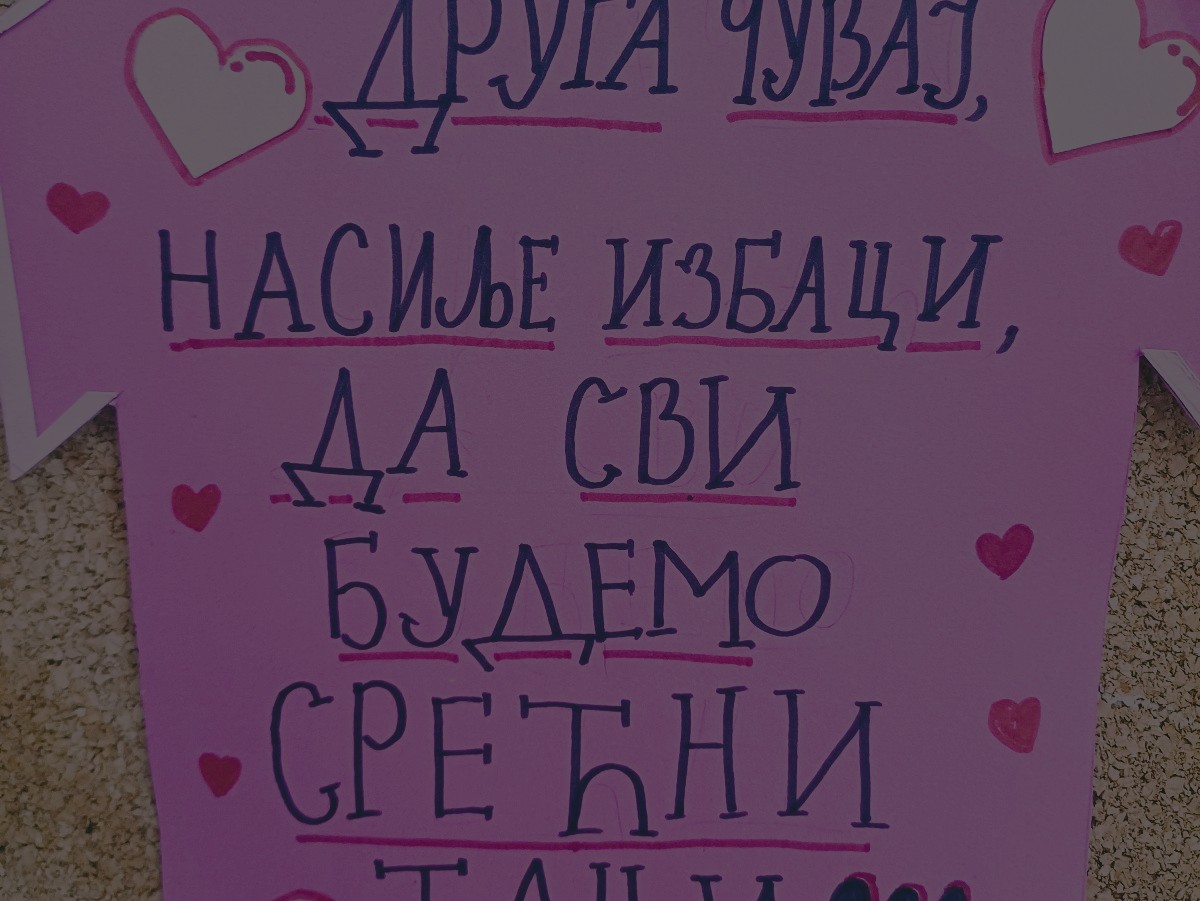 ДРУГА ЧУВАЈ,
НАСИЉЕ ИЗБАЦИ,
ДА СВИ
БУДЕМО
СРЕЋНИ